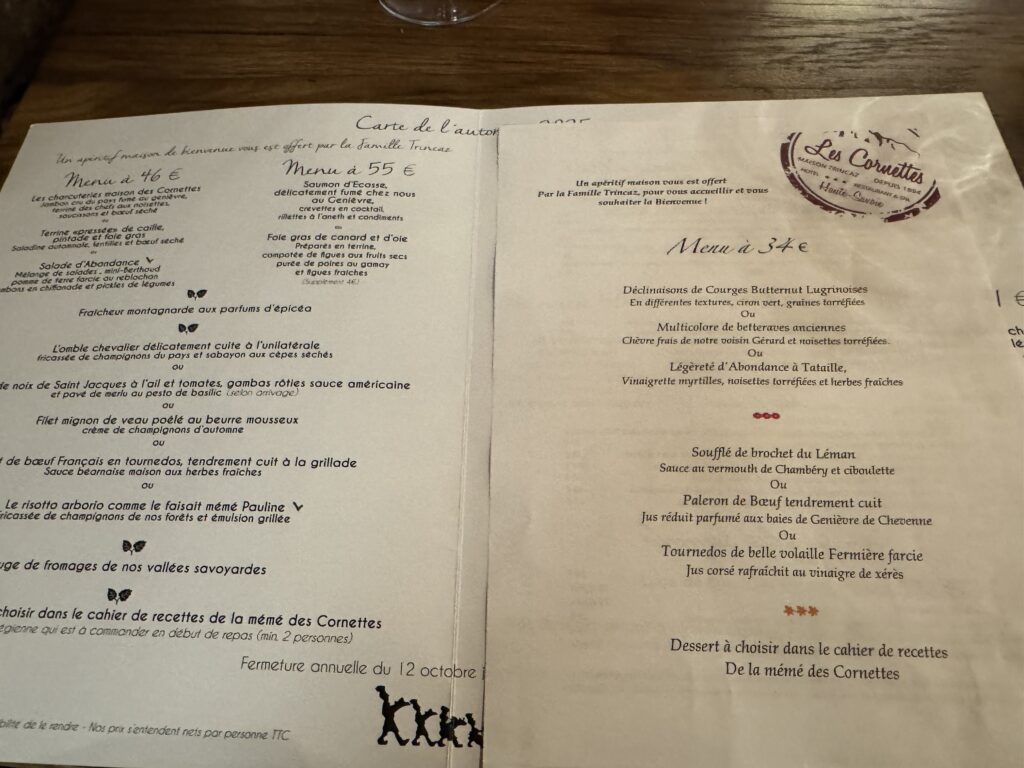 Carte de l'autom
Un apéritif maison de bienvenue vous est offert par la famille Trincaz
Menu à 46 €
Les charcuteries maison des Cornettes
Jambon cru du pays fumé au genièvre,
terrine des chefs aux noisettes,
saucissons et bœuf séché
ou
Terrine «pressée» de caille,
pintade et foie gras
Saladine automnale, lentilles et bœuf séché
ou
Salade d'Abondance
Mélange de salades, mini-Berthoud
pomme de terre farcie au reblochon
en chiffonade et pickles de légumes
Menu à 55 €
Saumon d'Ecosse,
délicatement fumé chez nous
au Genièvre,
crevettes en cocktail,
rillettes à l'aneth et condiments
ou
Foie gras de canard et d'oie
Préparés en terrine,
compotée de figues aux fruits secs
purée de poires au gamay
et figues fraîches
(Supplément 4€)
Fraîcheur montagnarde aux parfums d'épicéa
L'omble chevalier délicatement cuite à l'unilatérale
fricassée de champignons du pays et sabayon aux cèpes séchés
ou
de noix de Saint Jacques à l'ail et tomates, gambas rôties sauce américaine
et pavé de merlu au pesto de basilic (selon arrivage)
ou
Filet mignon de veau poêlé au beurre mousseux
crème de champignons d'automne
ou
de bœuf Français en tournedos, tendrement cuit à la grillade
Sauce béarnaise maison aux herbes fraîches
ou
Le risotto arborio comme le faisait mémé Pauline
fricassée de champignons de nos forêts et émulsion grillée
de fromages de nos vallées savoyardes
choisir dans le cahier de recettes de la mémé des Cornettes
qui est à commander en début de repas (min. 2 personnes)
Fermeture annuelle du 12 octobre
de le rendre - Nos prix s'entendent nets par personne TTC
Les Cornettes
MAISON TRINCAZ DEPUIS 1894
HOTEL *** RESTAURANT & SPA
Haute-Savoie
Un apéritif maison vous est offert
Par la Famille Trincaz, pour vous accueillir et vous
souhaiter la Bienvenue !
Menu à 34 €
Déclinaisons de Courges Butternut Lugrinoises
En différentes textures, ciron vert, graines torréfiées
Ou
Multicolore de betteraves anciennes
Chèvre frais de notre voisin Gérard et noisettes torréfiées.
Ou
Légèreté d'Abondance à Tataille,
Vinaigrette myrtilles, noisettes torréfiées et herbes fraîches
Soufflé de brochet du Léman
Sauce au vermouth de Chambéry et ciboulette
Ou
Paleron de Bœuf tendrement cuit
Jus réduit parfumé aux baies de Genièvre de Chevenne
Ou
Tournedos de belle volaille Fermière farcie
Jus corsé rafraîchit au vinaigre de xérès
Dessert à choisir dans le cahier de recettes
De la mémé des Cornettes